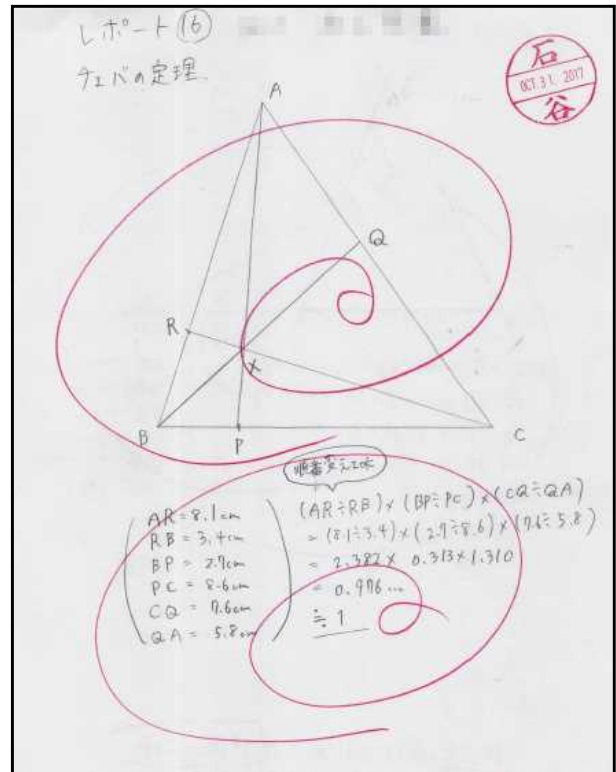 レポート⑯
チェバの定理
石
OCT.31.2017
谷
A
Q
R
X
B
P
C
順番変えてOK
AR = 8.1cm
RB = 3.4cm
BP = 2.7cm
PC = 8.6cm
CQ = 7.6cm
QA = 5.8cm
(AR÷RB)×(BP÷PC)×(CQ÷QA)
= (8.1÷3.4)×(2.7÷8.6)×(7.6÷5.8)
= 2.382× 0.313×1.310
= 0.976...
≒ 1